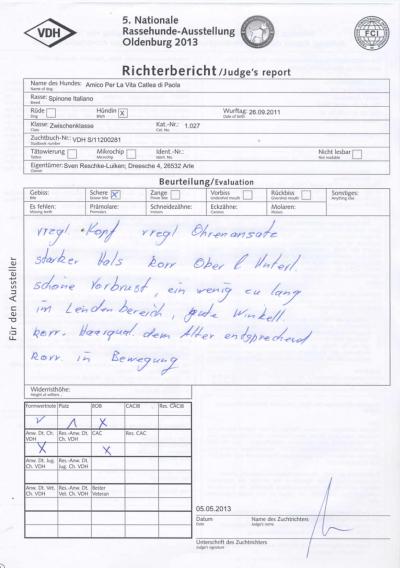 VDH
5. Nationale
Rassehunde-Ausstellung
Oldenburg 2013
FCI
Richterbericht/Judge's report
Name des Hundes: Amico Per La Vita Catlea di Paola
Name of dog
Rasse: Spinone Italiano
Breed
Rüde
Dog
Hündin X
Bitch
Wurftag: 26.09.2011
Date of birth
Klasse: Zwischenklasse
Class
Kat.-Nr.: 1.027
Cat. No.
Zuchtbuch-Nr.: VDH S/11200281
Studbook number
Tätowierung
Tattoo
Mikrochip
Microchip
Ident.-Nr.:
Ident. No.
Nicht lesbar
Not readable
Eigentümer: Sven Reschke-Luiken; Dreesche 4, 26532 Arle
Owner
Beurteilung/Evaluation
Gebiss:
Bite
Schere X
Scissor bite
Zange
Pincer bite
Vorbiss
Undershot mouth
Rückbiss
Overshot mouth
Sonstiges:
Anything else
Es fehlen:
Missing teeth
Prämolare:
Premolars
Schneidezähne:
Incisors
Eckzähne:
Canines
Molaren:
Molars
Für den Aussteller
vzgl. Kopf vzgl Ohrenansatz
starker Hals korr Ober & Unterl.
schöne Vorbrust, ein wenig zu lang
im Lendenbereich, gute Winkell
korr. Haarqual. dem Alter entsprechend
korr. in Bewegung
Widerristhöhe:
Height at withers
Formwertnote Platz BOB CACIB Res. CACIB
V 1 X
Anw. Dt. Ch. VDH
Res.-Anw. Dt. Ch. VDH
CAC
Res. CAC
X X
Anw. Dt. Jug. Ch. VDH
Res.-Anw. Dt. Jug. Ch. VDH
Anw. Dt. Vet. Ch. VDH
Res.-Anw. Dt. Vet. Ch. VDH
Bester Veteran
05.05.2013
Datum
Date
Name des Zuchtrichters
Judge's name
Unterschrift des Zuchtrichters
Judge's signature